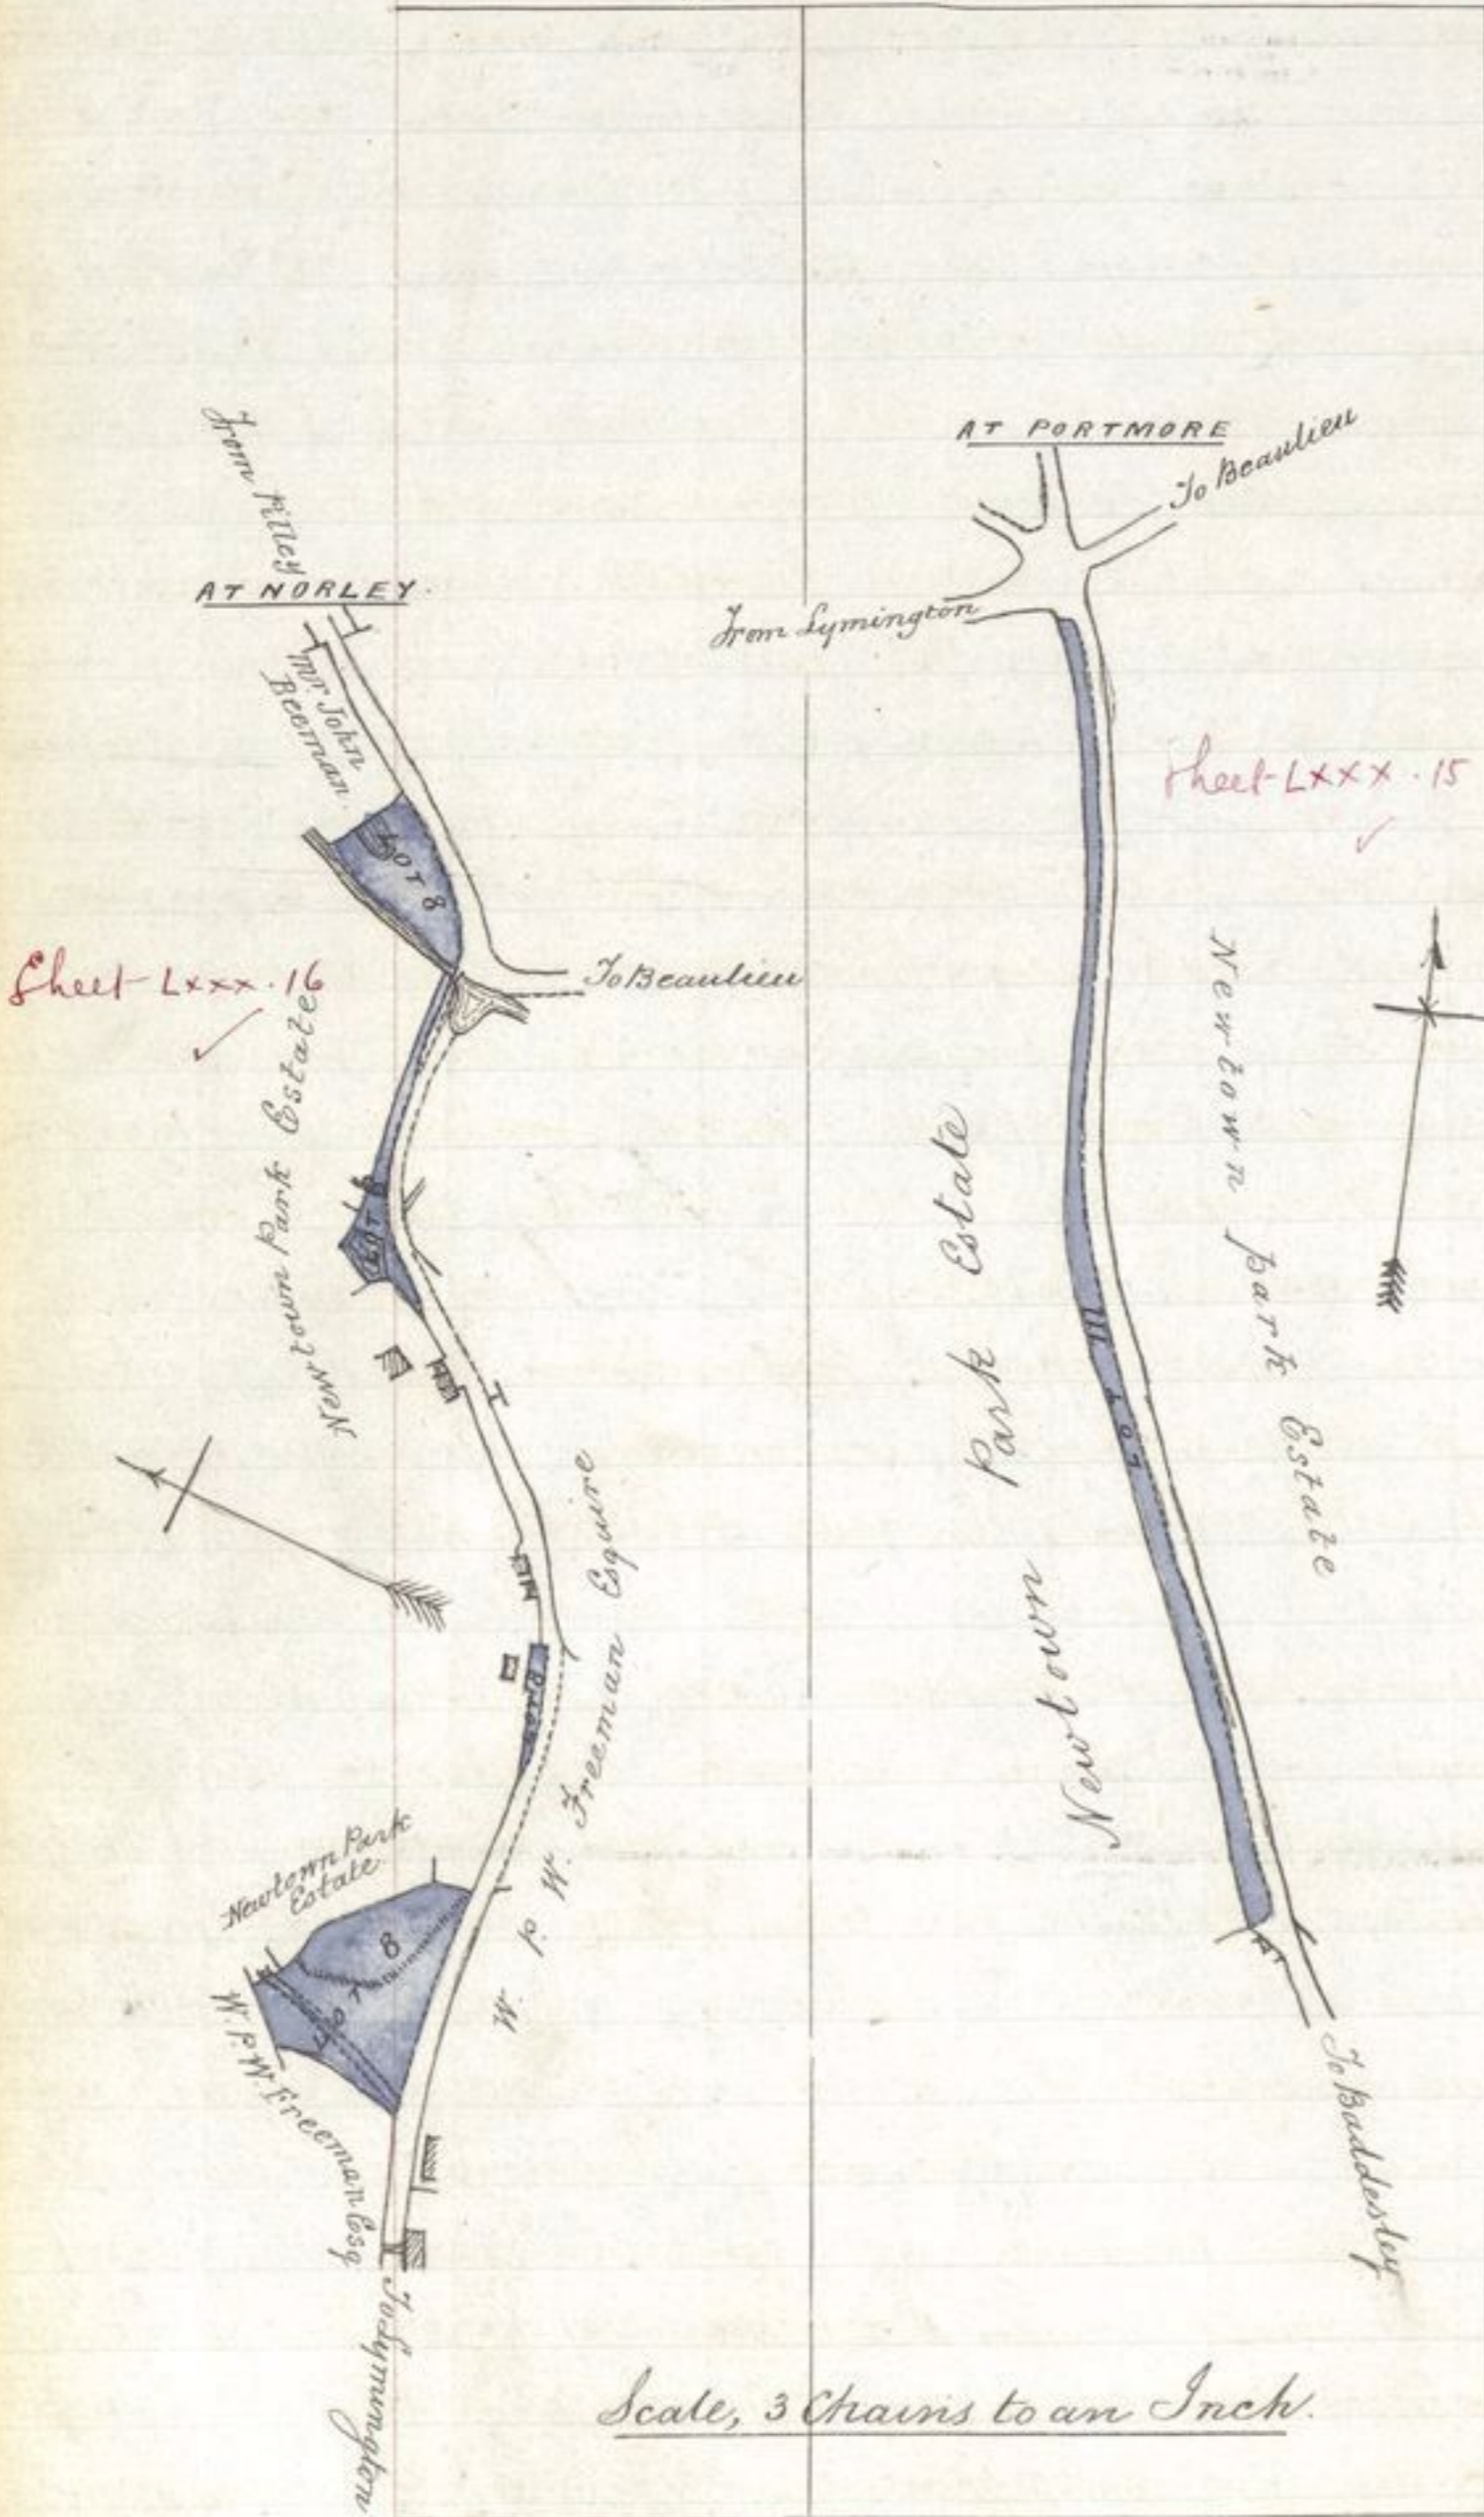 From Pilley
AT NORLEY.
Mr. John
Beeman.
LOT 8
Sheet LXXX. 16
To Beaulieu
Newtown Park Estate
LOT 8
W. P. W. Freeman Esquire
Newtown Park
Estate
LOT 8
W. P. W. Freeman Esq
To Lymington
AT PORTMORE
To Beaulieu
From Lymington
Sheet LXXX. 15
Newtown Park Estate
LOT
Newtown park Estate
To Baddesley
Scale, 3 Chains to an Inch.